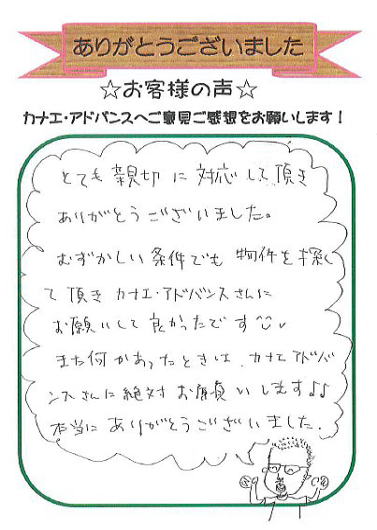 ありがとうございました
☆お客様の声☆
カナエ・アドバンスへご意見ご感想をお願いします！
とても親切に対応して頂き
ありがとうございました。
むずかしい条件でも物件を探し
て頂きカナエ・アドバンスさんに
お願いして良かったです
また何かあったときは、カナエアドバ
ンスさんに絶対お願いします♪♪
本当にありがとうございました。